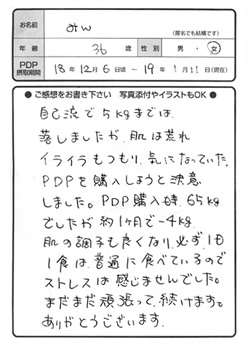 お名前 みw (匿名でも結構です)
年齢 36才 性別 男・女
PDP摂取期間 18年12月6日頃〜19年1月11日(現在)
●ご感想をお書き下さい 写真添付やイラストもOK●
自己流で5kgまでは、
落しましたが、肌は荒れ
イライラもつもり、気になっていた
PDPを購入しようと決意
しました。PDP購入時、65kg
でしたが約1ヶ月で-4kg.
肌の調子も良くなり、必ず1日
1食は普通に食べているので
ストレスは感じませんでした。
まだまだ頑張って、続けます。
ありがとうございます。